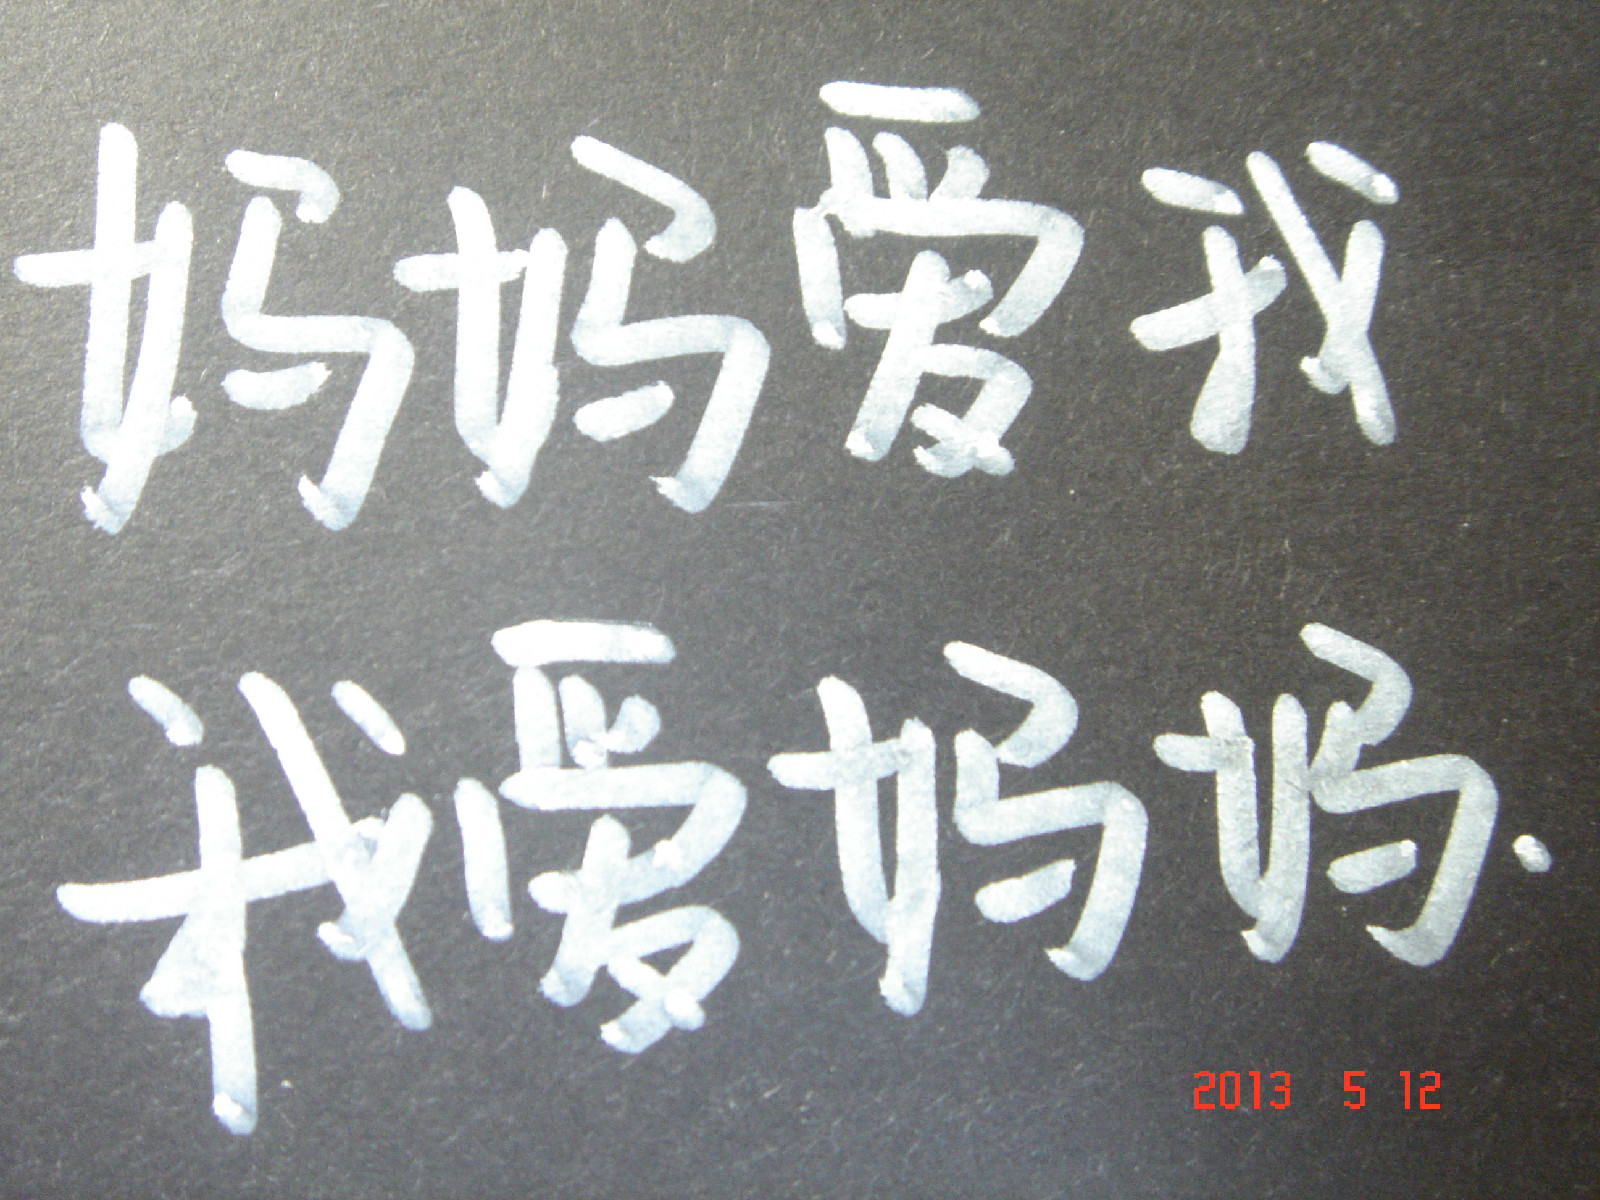 妈妈爱我
我爱妈妈.
2013 5 12